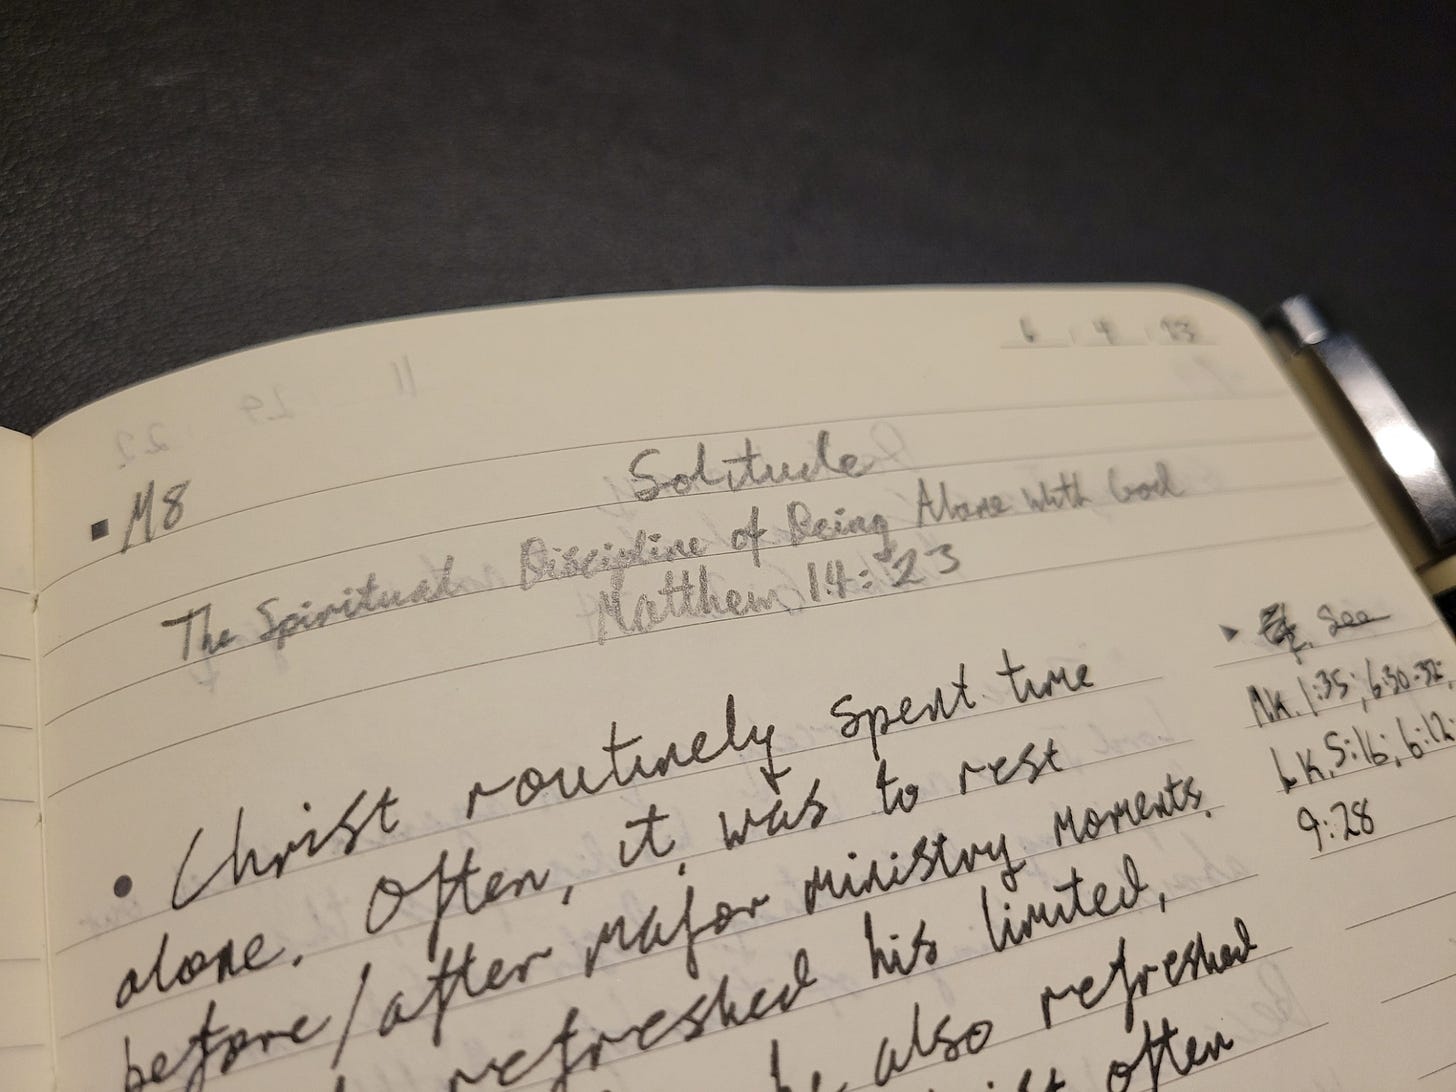 6 4 23
M8
Solitude
The Spiritual Discipline of Being Alone with God
Matthew 14:23
• Christ routinely spent time
alone. Often, it was to rest
before/after major ministry moments.
refreshed his limited,
he also refreshed
often
▸ See
Mk. 1:35; 6:30-32;
Lk. 5:16; 6:12;
9:28